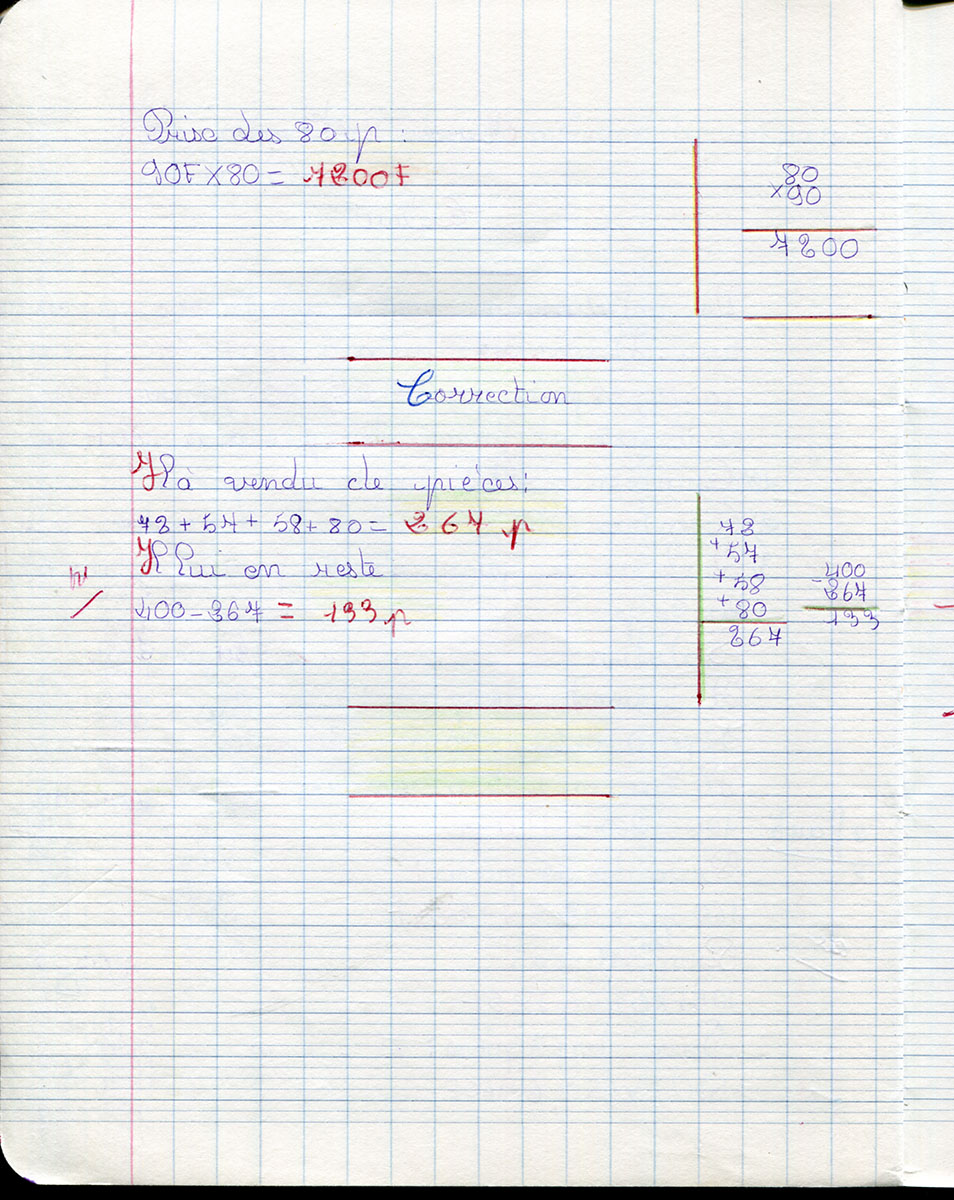 Prise des 80 p :
90F × 80 = 7200F
80
× 90
7200
Correction
Il a vendu de pièces :
72 + 57 + 58 + 80 = 267 p
Il lui en reste
400 - 267 = 133 p
72
+ 57
+ 58
+ 80
267
400
- 267
133